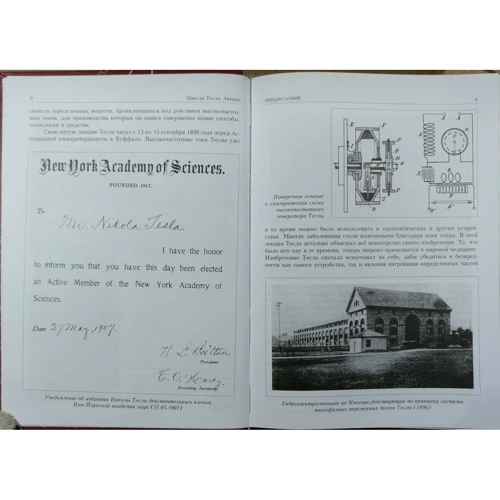 8
Никола Тесла. Лекции
свойств определенных веществ, проявляющихся под действием высокочастот-
ных токов, для производства которых он нашел совершенно новые способы,
технологии и средства.
Свою пятую лекцию Тесла читал с 13 по 15 сентября 1898 года перед Ас-
социацией электротерапевтов в Буффало. Высокочастотные токи Теслы уже
New York Academy of Sciences.
FOUNDED 1817.
To
Mr. Nikola Tesla.
I have the honor
to inform you that you have this day been elected
an Active Member of the New York Academy of
Sciences.
Date 27 May, 1907.
President
Recording Secretary
Уведомление об избрании Николы Теслы действительным членом
Нью-Йоркской академии наук (27.05.1907)
ПРЕДИСЛОВИЕ
9
Поперечное сечение
и электрическая схема
высокочастотного
генератора Теслы
в то время можно было использовать в терапевтических и других устрой-
ствах. Многие заболевания стали излечимыми благодаря этим токам. В этой
лекции Тесла детально объяснил всё новаторство своего изобретения. То, что
было ноу-хау в те времена, теперь широко применяется в мировой медицине.
Изобретение Тесла сначала испытывал на себе, дабы убедиться в безвред-
ности как самого устройства, так и явления нагревания определенных частей
Гидроэлектростанция на Ниагаре, действующая по принципу системы
многофазных переменных токов Теслы (1896)